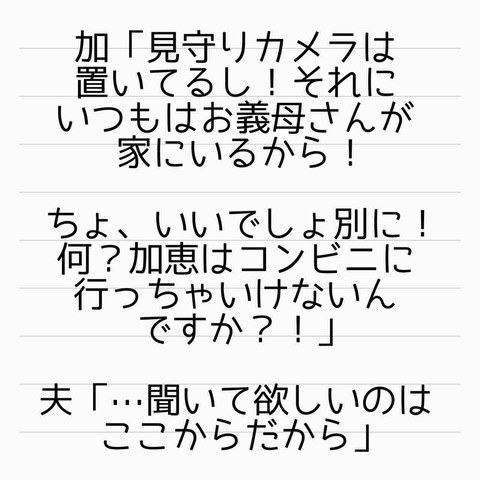 加「見守りカメラは
置いてるし！それに
いつもはお義母さんが
家にいるから！
ちょ、いいでしょ別に！
何？加恵はコンビニに
行っちゃいけないん
ですか？！」
夫「…聞いて欲しいのは
ここからだから」